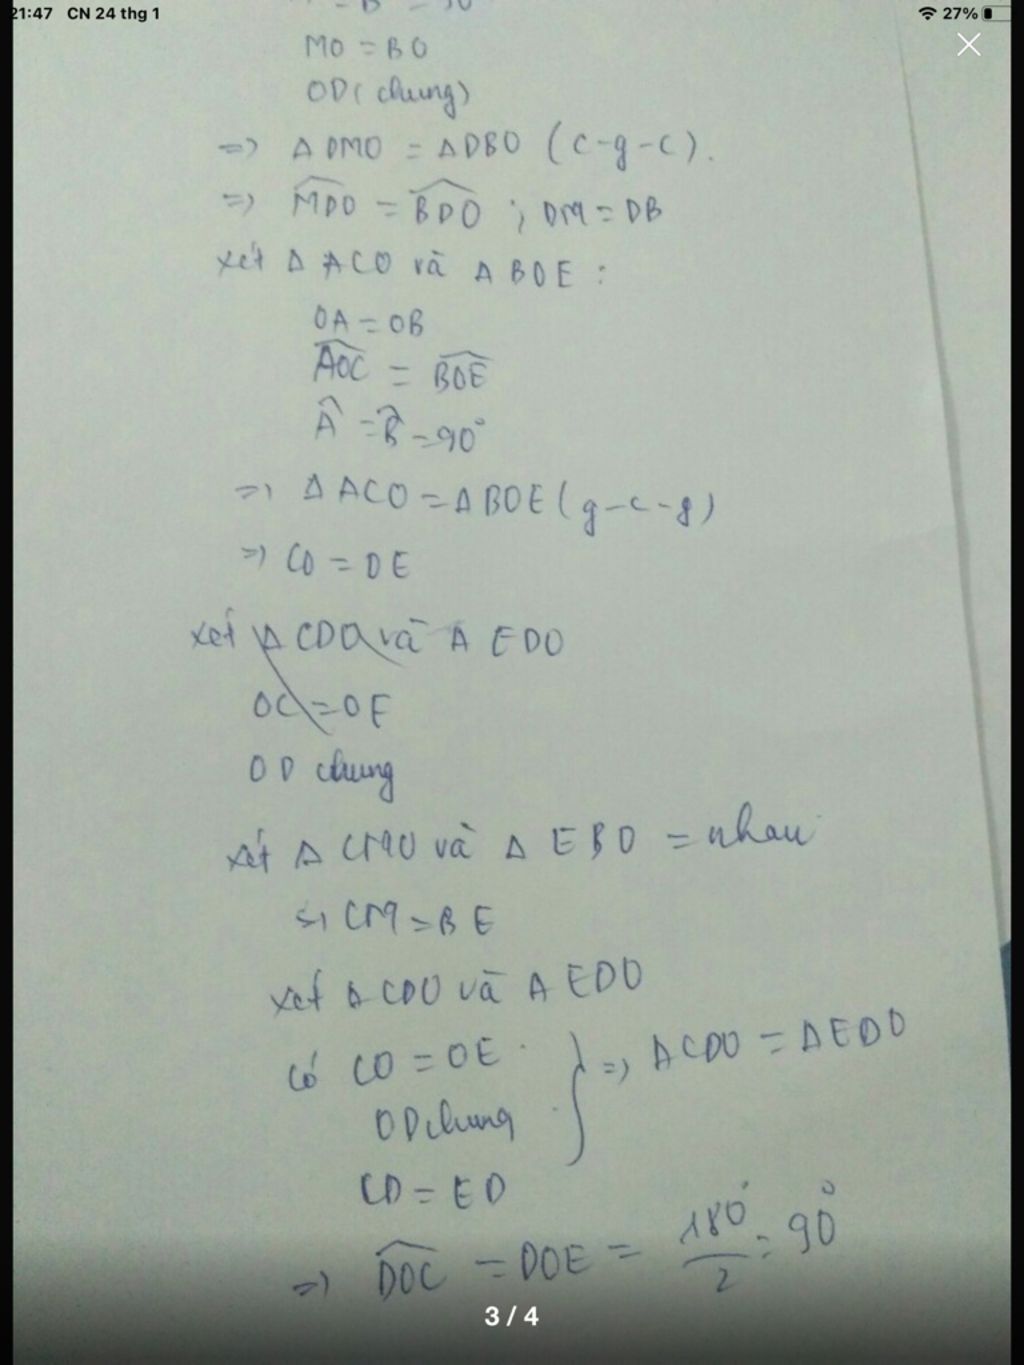 21:47 CN 24 thg 1
27%
MO = BO
OD (chung)
=> Δ DMO = Δ DBO (c-g-c).
=> \widehat{MDO} = \widehat{BDO} ; DM = DB
xét Δ ACO và Δ BOE :
OA = OB
\widehat{AOC} = \widehat{BOE}
\widehat{A} = \widehat{B} = 90°
=> Δ ACO = Δ BOE (g-c-g)
=> CO = OE
xét Δ CDO và Δ EDO
OC = OE
OD chung
xét Δ CMO và Δ EBO = nhau
=> CM = BE
xét Δ CDO và Δ EDO
có CO = OE
OD chung } => Δ CDO = Δ EDO
CD = ED
=> \widehat{DOC} = DOE = 180°/2 = 90°
3 / 4